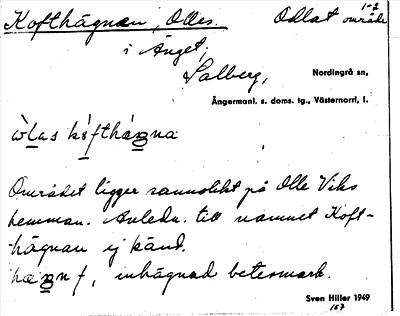 Kofthägnan, Olles. Odlat område 1-2
i Änget,
Salberg, Nordingrå sn,
Ångermanl. s. doms. tg., Västernorrl, l.
Området ligger sannolikt på Olle Viks
hemman. Anledn. till namnet Koft-
hägnan ej känd.
f, inhägnad betesmark.
Sven Hiller 1949
157